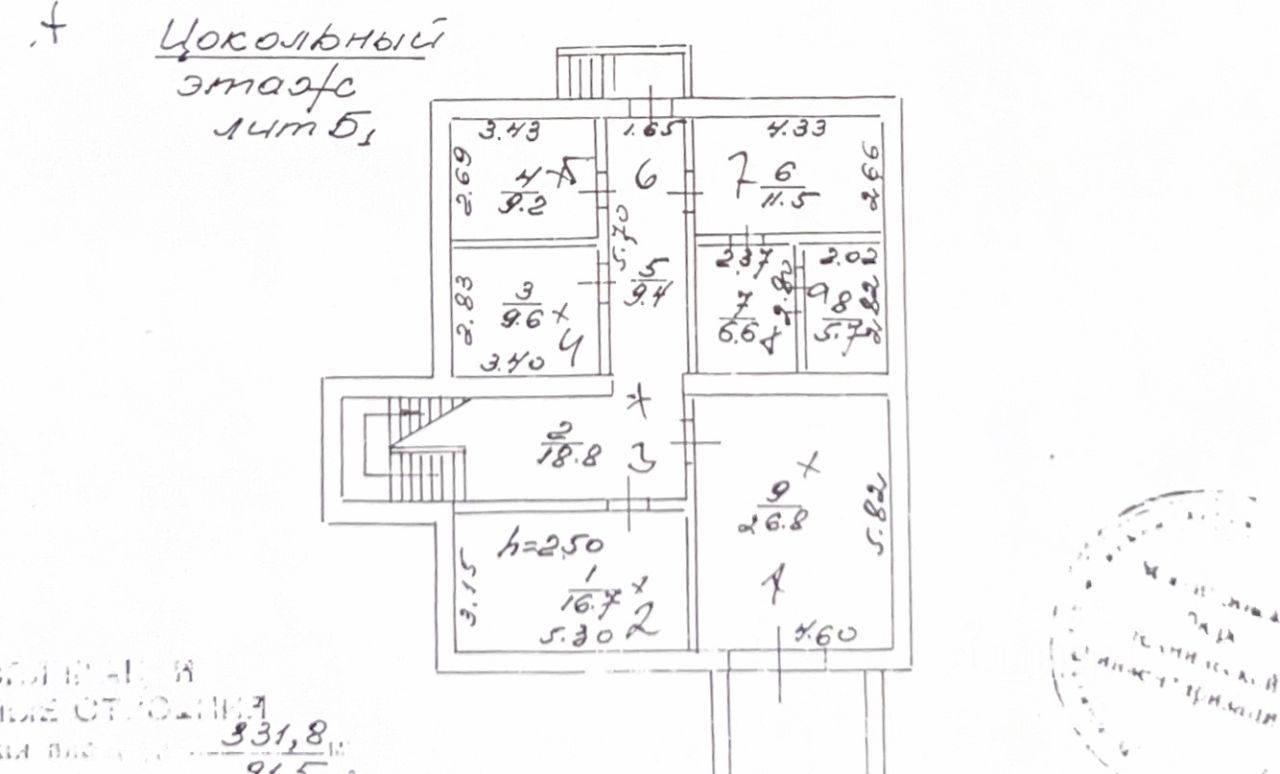 Цокольный
этаж
лит Б₁
3.43
1.65
4.33
2.69
4
9.2
5
6
7
6
11.5
2.66
5.70
5
9.4
2.83
3
9.6
4
3.40
2.37
2.82
7
6.6
2.02
2.82
9
8
5.7
2
18.8
3
9
26.8
5.82
1
4.60
h=2.50
3.15
1
16.7
2
5.30
331,8
91.5